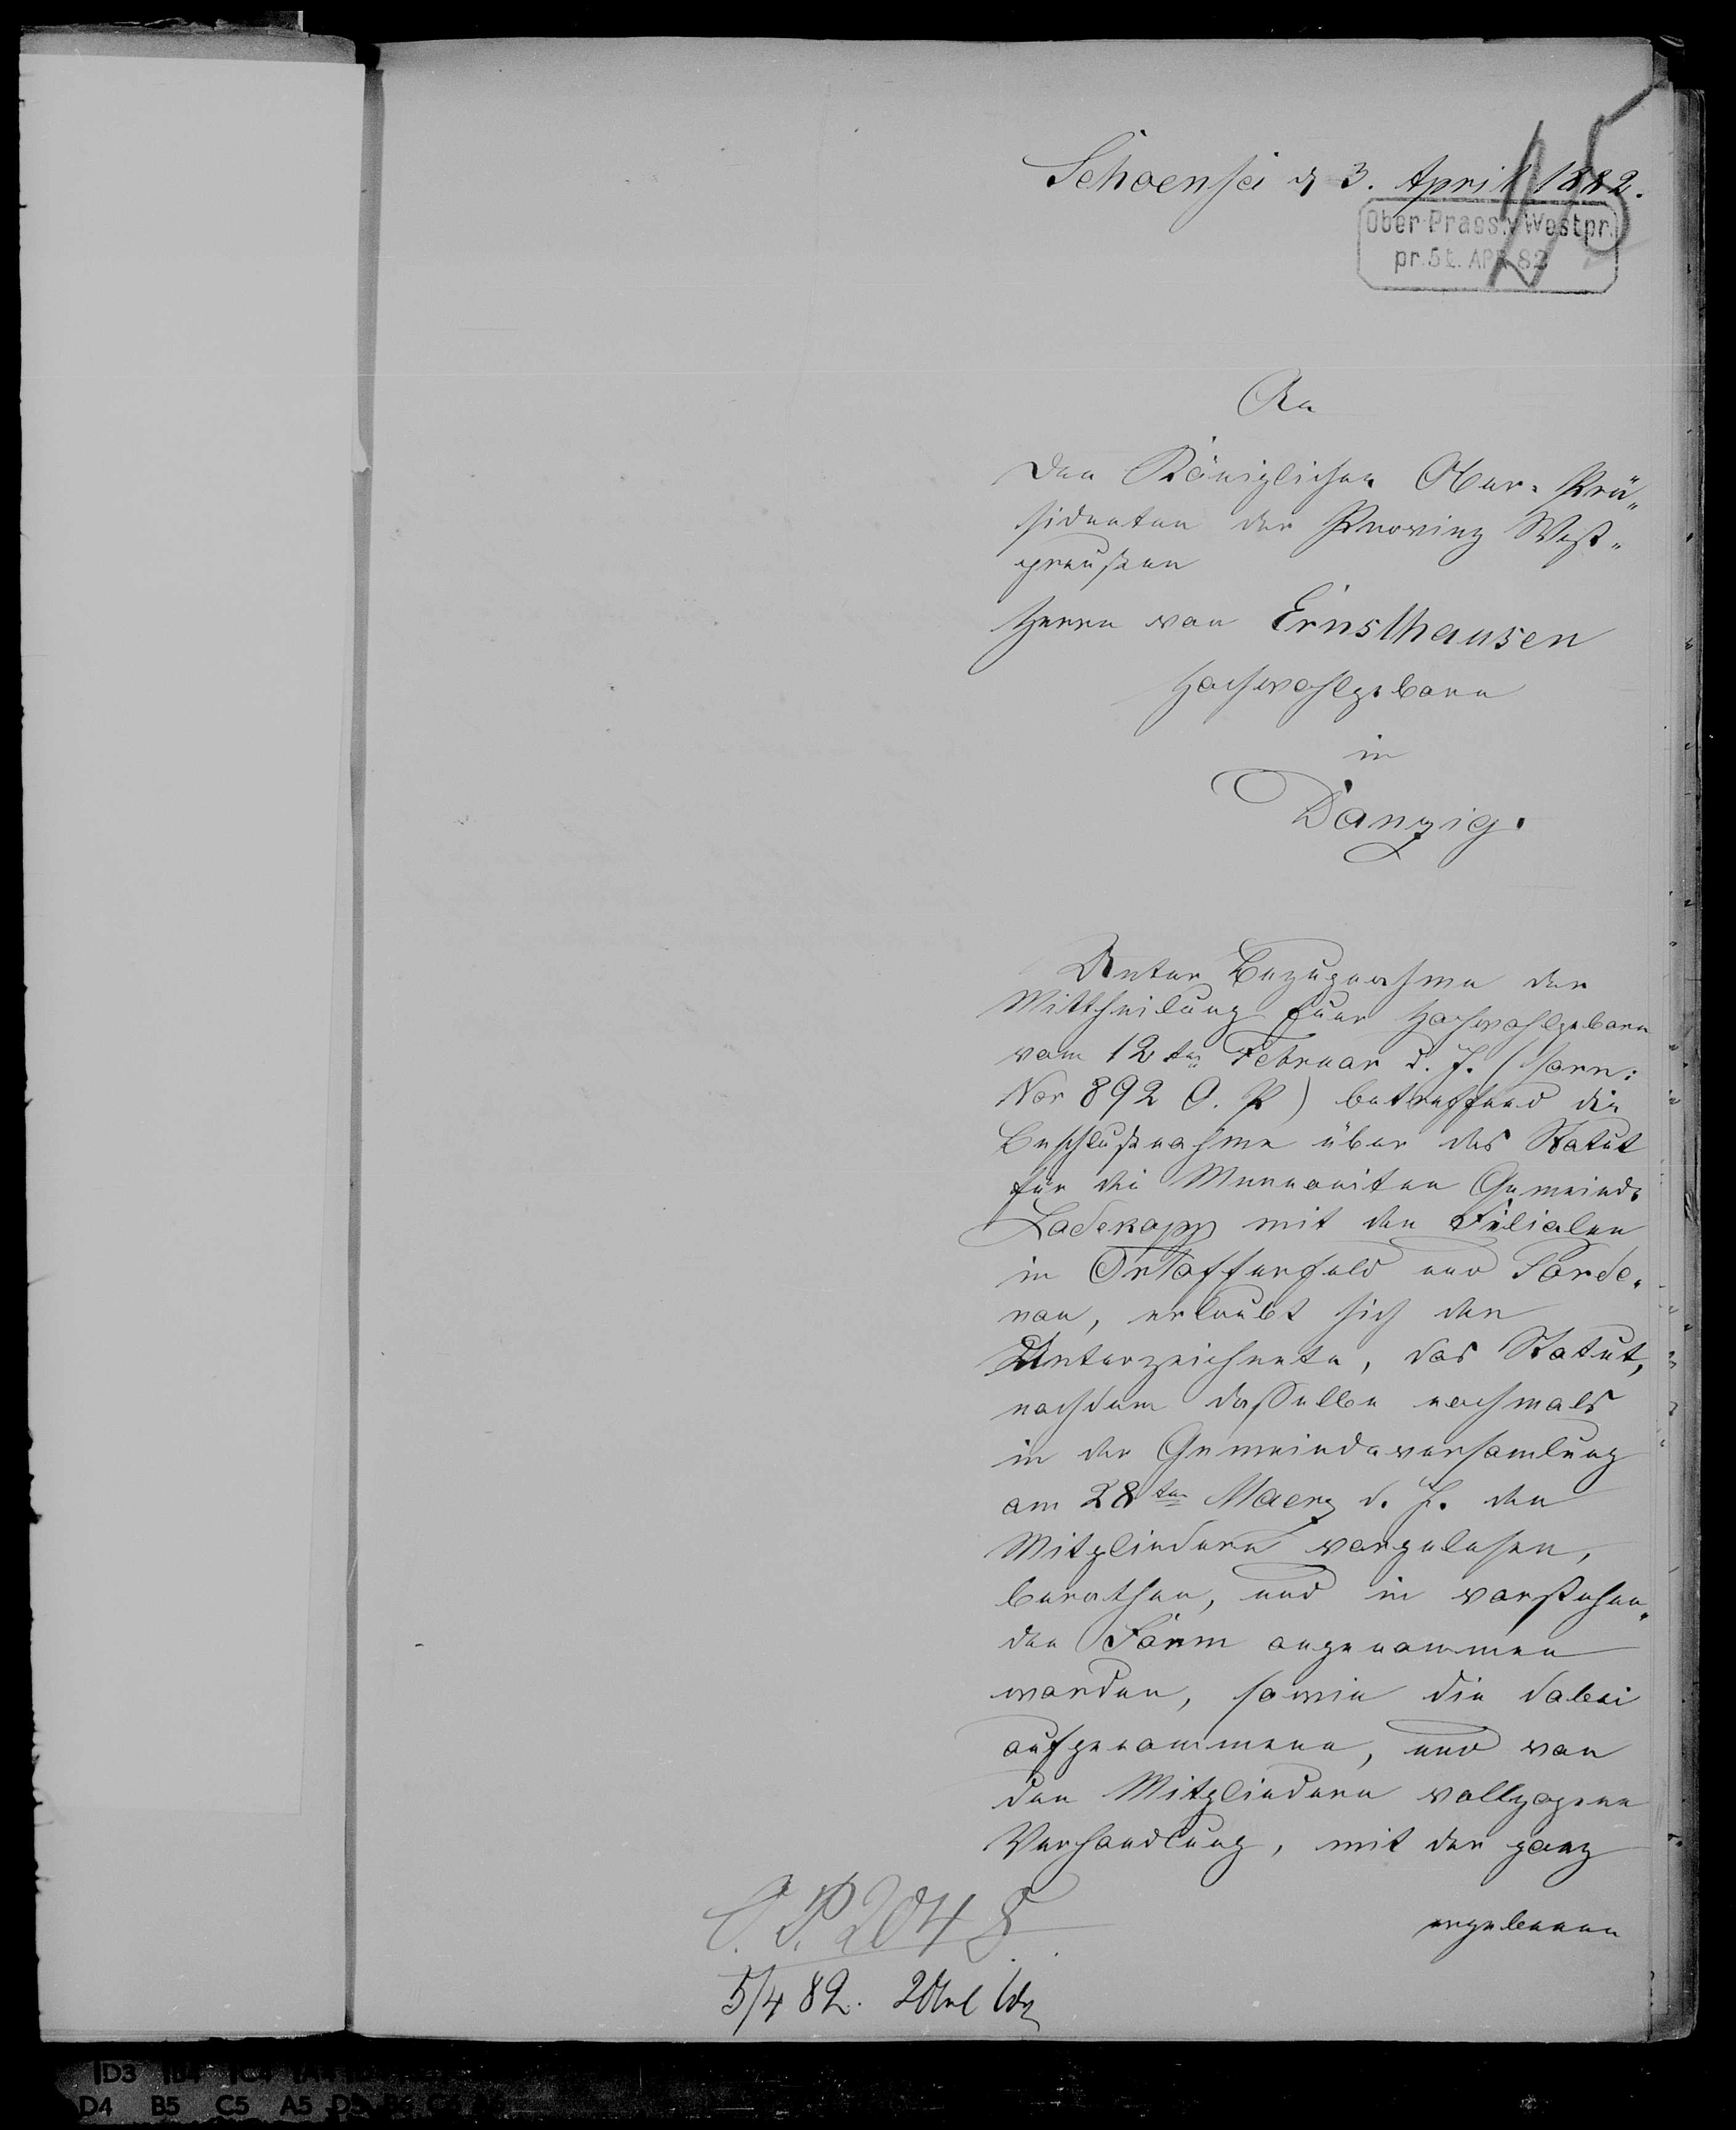 Schoensee d 3. April 1882.
Ober-Praes. v. Westpr.
pr. 5t. APR. 82
An
den Königlichen Ober-Prä-
sidenten der Provinz West-
preußen
Herrn von Ernsthausen
Hochwohlgeboren
in
Danzig.
Unter Bezugnahme der
Mittheilung Euer Hochwohlgeboren
vom 12ten Februar d. J. (Jorn:
Nor 892 O. P) betreffend die
Beschlußnahme über das Statut
für die Mennoniten Gemeinde
Ladekopp mit den Filialen
in Orlofferfeld und Porde-
nau, erlaubt sich der
Unterzeichnete, das Statut,
nachdem dasselbe nochmals
in der Gemeindeversamlung
am 28ten Maerz d. J. den
Mitgliedern vorgelesen,
berathen, und in vorstehen-
der Form angenommen
worden, sowie die dabei
aufgenommene, und von
den Mitgliedern vollzogene
Verhandlung, mit der ganz
ergebenen
O. P. 2048
5/4 82.